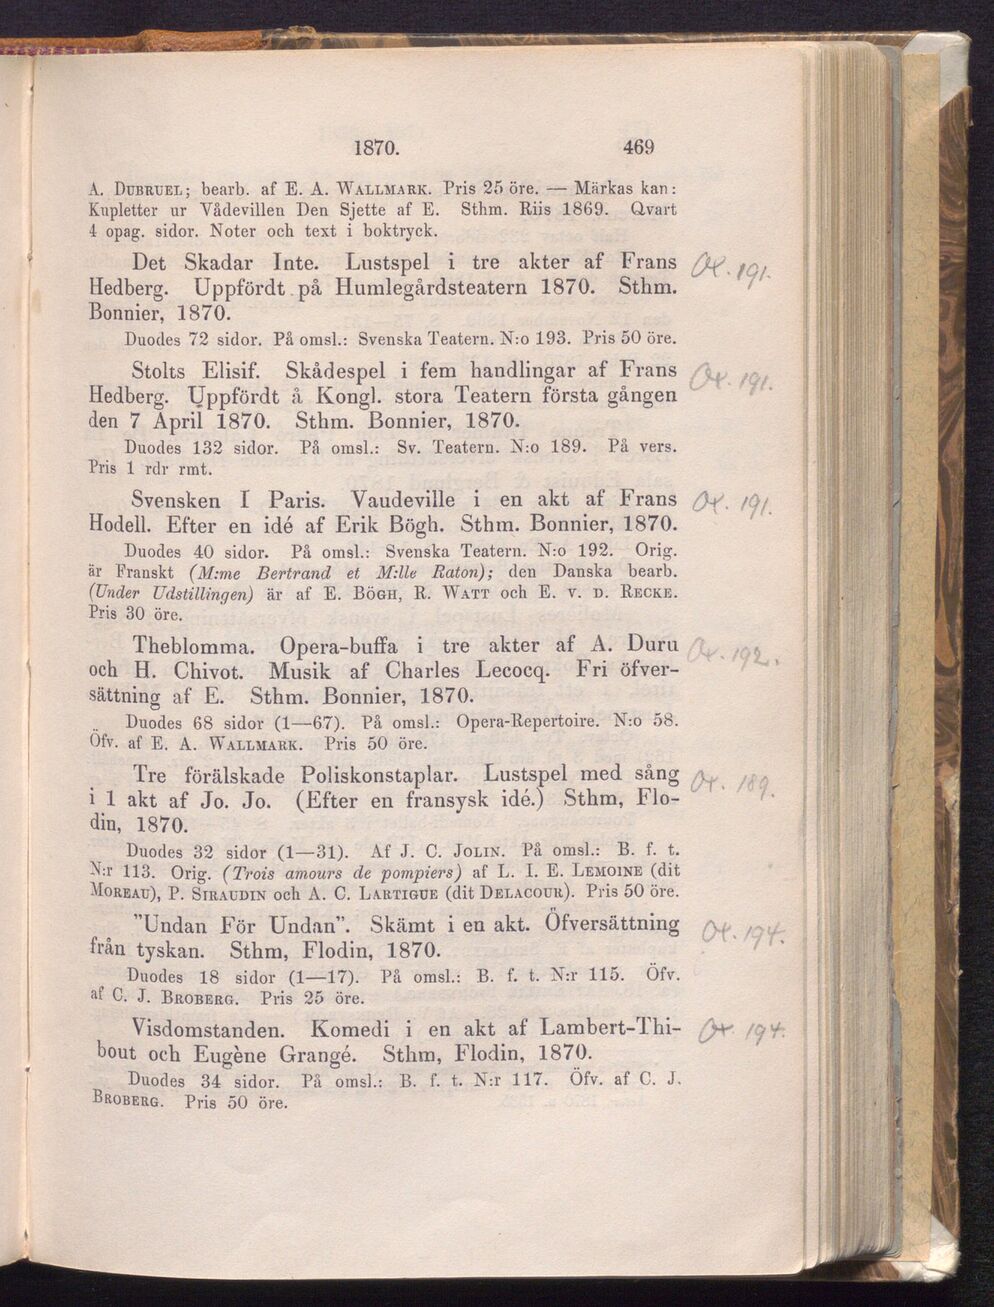 1870. 469
A. DUBRUEL; bearb. af E. A. WALLMARK. Pris 25 öre. — Märkas kan:
Kupletter ur Vådevillen Den Sjette af E. Sthm. Riis 1869. Qvart
4 opag. sidor. Noter och text i boktryck.
Det Skadar Inte. Lustspel i tre akter af Frans Ox. 191.
Hedberg. Uppfördt på Humlegårdsteatern 1870. Sthm.
Bonnier, 1870.
Duodes 72 sidor. På omsl.: Svenska Teatern. N:o 193. Pris 50 öre.
Stolts Elisif. Skådespel i fem handlingar af Frans Ox. 191.
Hedberg. Uppfördt å Kongl. stora Teatern första gången
den 7 April 1870. Sthm. Bonnier, 1870.
Duodes 132 sidor. På omsl.: Sv. Teatern. N:o 189. På vers.
Pris 1 rdr rmt.
Svensken I Paris. Vaudeville i en akt af Frans Ox. 191.
Hodell. Efter en idé af Erik Bögh. Sthm. Bonnier, 1870.
Duodes 40 sidor. På omsl.: Svenska Teatern. N:o 192. Orig.
är Franskt (M:me Bertrand et M:lle Raton); den Danska bearb.
(Under Udstillingen) är af E. BÖGH, R. WATT och E. V. D. RECKE.
Pris 30 öre.
Theblomma. Opera-buffa i tre akter af A. Duru Ox. 192.
och H. Chivot. Musik af Charles Lecocq. Fri öfver-
sättning af E. Sthm. Bonnier, 1870.
Duodes 68 sidor (1—67). På omsl.: Opera-Repertoire. N:o 58.
Öfv. af E. A. WALLMARK. Pris 50 öre.
Tre förälskade Poliskonstaplar. Lustspel med sång Ox. 189.
i 1 akt af Jo. Jo. (Efter en fransysk idé.) Sthm, Flo-
din, 1870.
Duodes 32 sidor (1—31). Af J. C. JOLIN. På omsl.: B. f. t.
N:r 113. Orig. (Trois amours de pompiers) af L. I. E. LEMOINE (dit
MOREAU), P. SIRAUDIN och A. C. LARTIGUE (dit DELACOUR). Pris 50 öre.
"Undan För Undan". Skämt i en akt. Öfversättning Ox. 194.
från tyskan. Sthm, Flodin, 1870.
Duodes 18 sidor (1—17). På omsl.: B. f. t. N:r 115. Öfv.
af C. J. BROBERG. Pris 25 öre.
Visdomstanden. Komedi i en akt af Lambert-Thi- Ox. 194.
bout och Eugène Grangé. Sthm, Flodin, 1870.
Duodes 34 sidor. På omsl.: B. f. t. N:r 117. Öfv. af C. J.
BROBERG. Pris 50 öre.